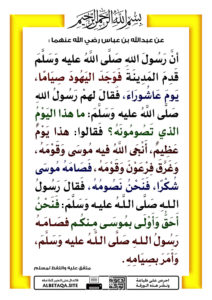 بسم الله الرحمن الرحيم
عن عبدالله بن عباس رضي الله عنهما:
أَنَّ رَسُولَ اللهِ صَلَّى اللَّهُ عَلَيْهِ وَسَلَّمَ
قَدِمَ الْمَدِينَةَ فَوَجَدَ الْيَهُودَ صِيَامًا،
يَومَ عَاشُورَاءَ، فَقَالَ لهمْ رَسُولُ اللهِ
صَلَّى اللَّهُ عليه وسلَّمَ: ما هذا اليَوْمُ
الذي تَصُومُونَهُ؟ فقالوا: هذا يَوْمٌ
عَظِيمٌ، أَنْجَى اللَّهُ فيه مُوسَى وَقَوْمَهُ،
وَغَرَّقَ فِرْعَوْنَ وَقَوْمَهُ، فَصَامَهُ مُوسَى
شُكْرًا، فَنَحْنُ نَصُومُهُ، فَقَالَ رَسُولُ
اللهِ صَلَّى اللَّهُ عليه وسلَّمَ: فَنَحْنُ
أَحَقُّ وَأَوْلَى بمُوسَى مِنكُم فَصَامَهُ
رَسُولُ اللهِ صَلَّى اللَّهُ عليه وسلَّمَ،
وَأَمَرَ بصِيَامِهِ.
متفق عليه واللفظ لمسلم
احرص على طباعة
ونشر هذه الورقة
ALBETAQA.SITE